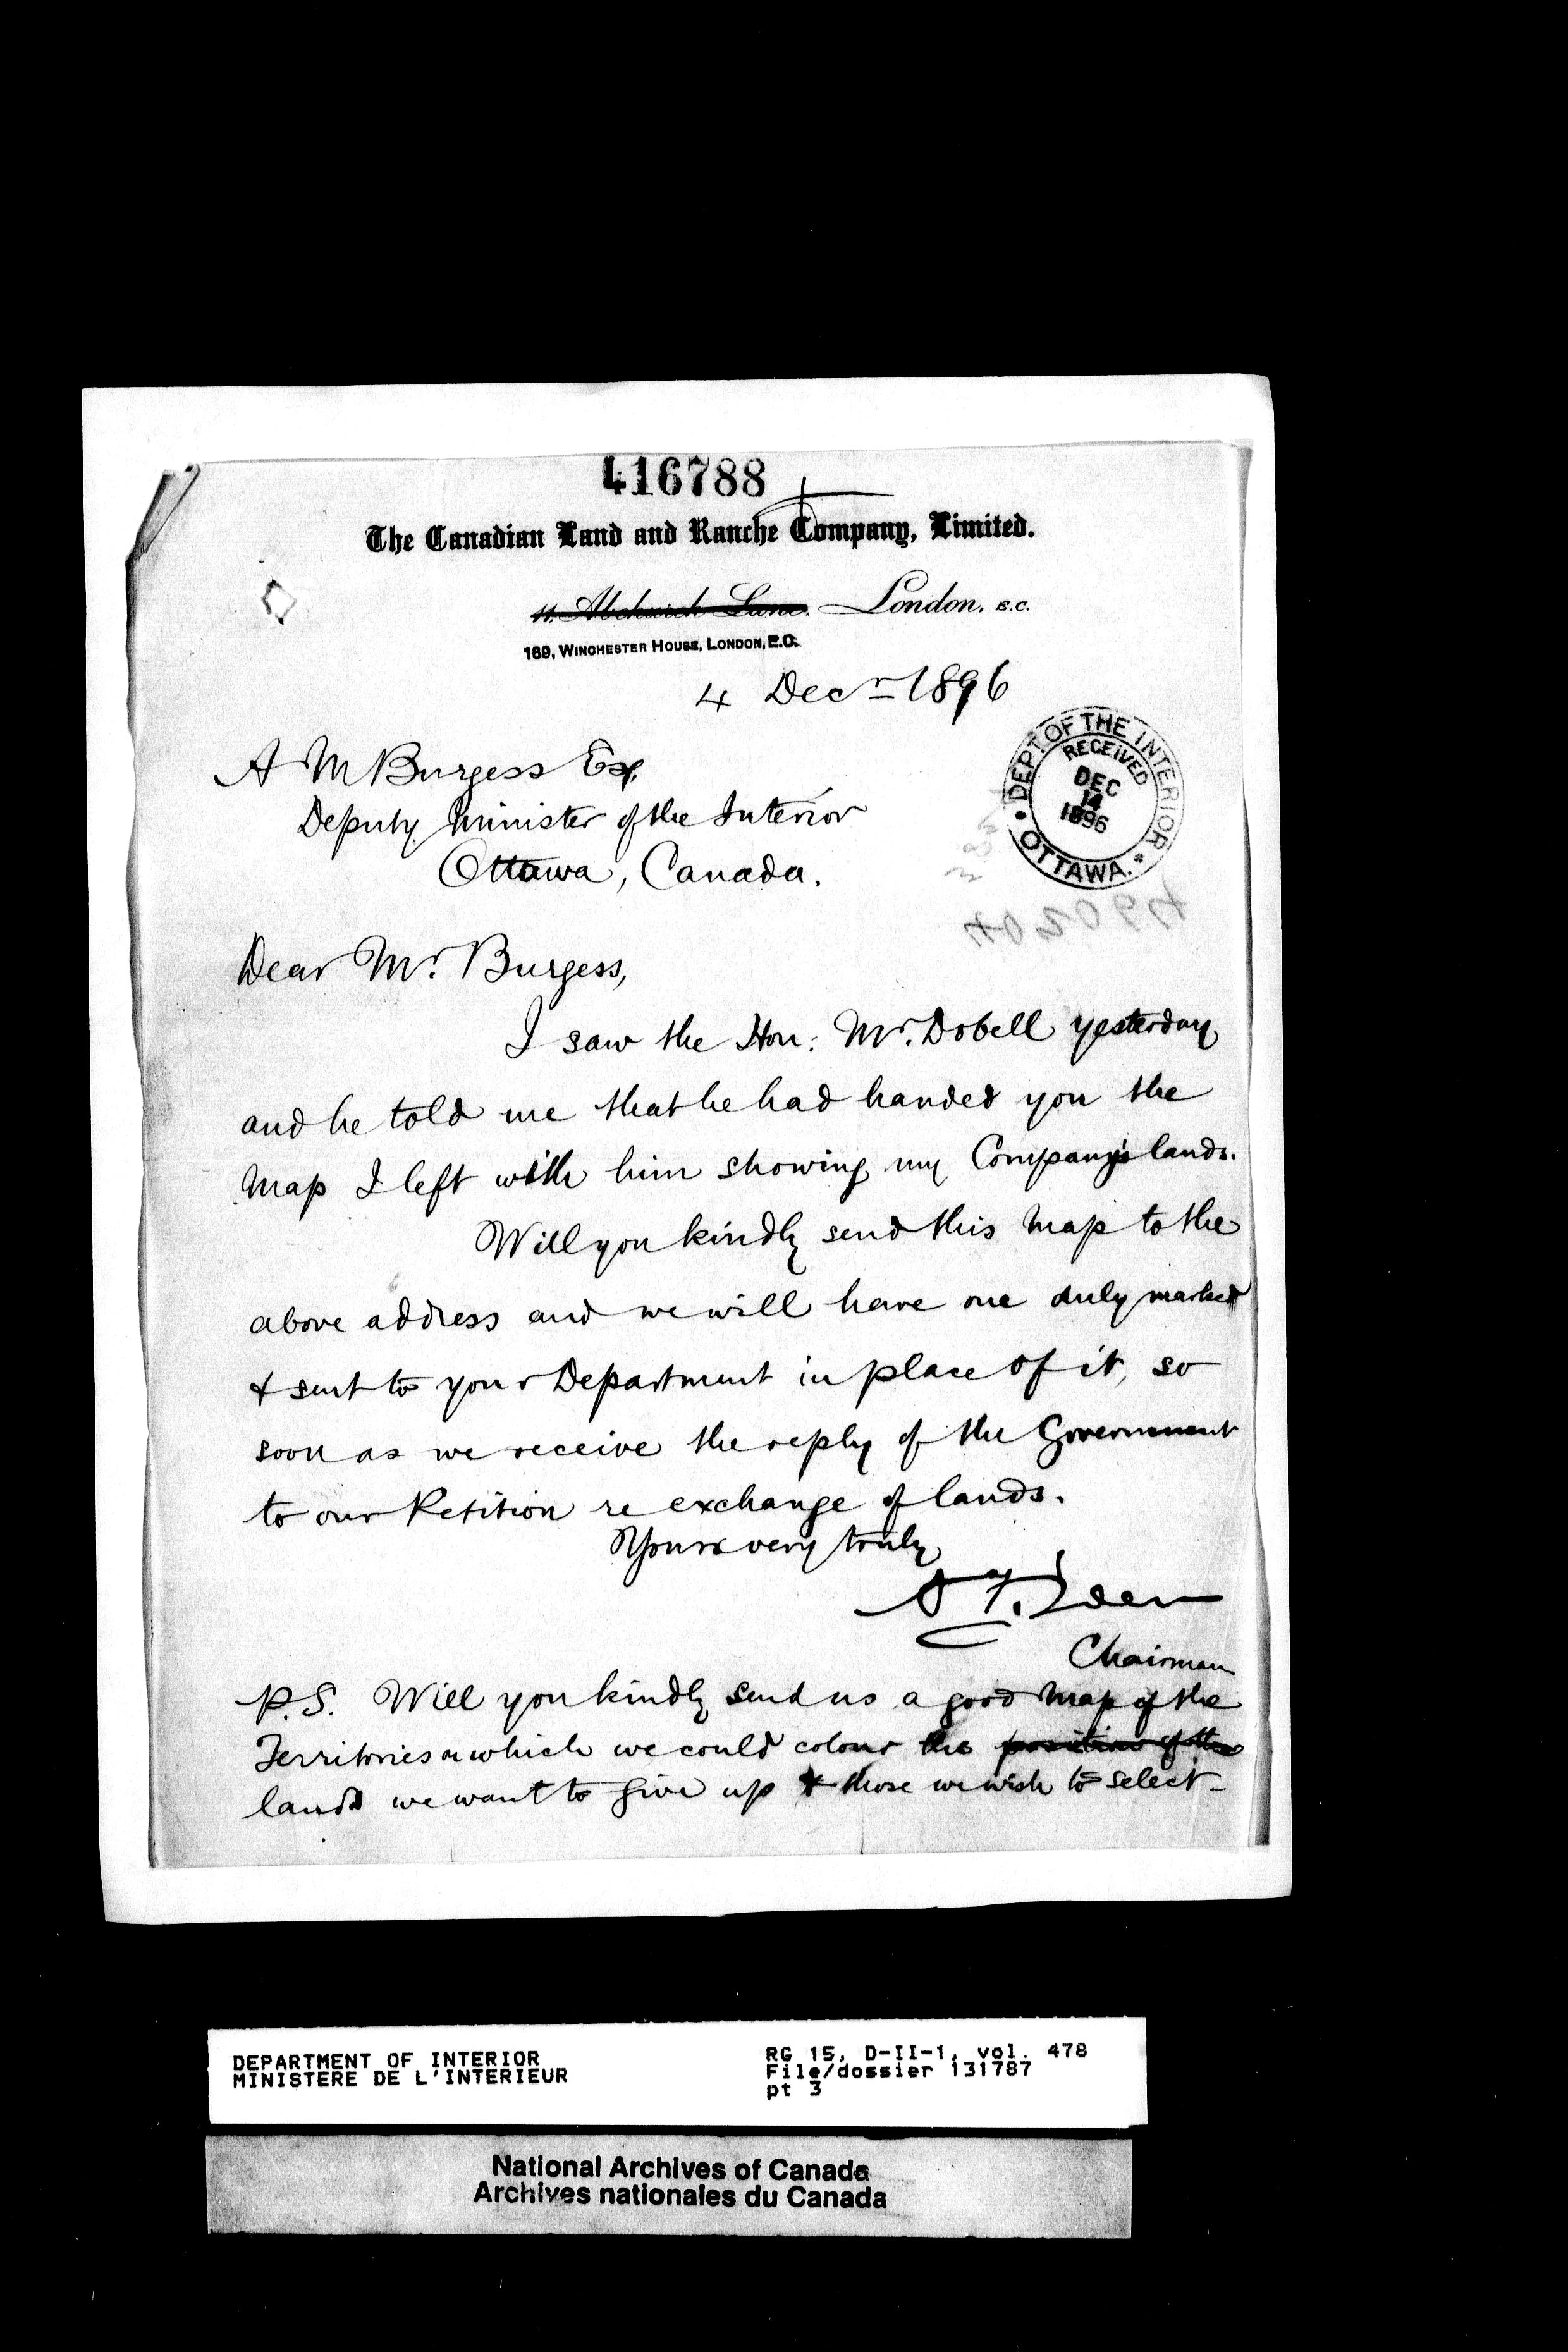 416788
The Canadian Land and Ranche Company, Limited.
11, Abchurch Lane. London, E.C.
169, WINCHESTER HOUSE, LONDON, E.C.
4 Decr 1896
DEPT. OF THE INTERIOR
RECEIVED
DEC
14
1896
OTTAWA.
A M Burgess Esq.
Deputy Minister of the Interior
Ottawa, Canada.
Dear Mr. Burgess,
I saw the Hon: Mr. Dobell yesterday
and he told me that he had handed you the
Map I left with him showing my Company's lands.
Will you kindly send this Map to the
above address and we will have one duly marked
& sent to your Department in place of it, so
soon as we receive the reply of the Government
to our Petition re exchange of lands.
Yours very truly
Chairman
P.S. Will you kindly send us a good Map of the
Territories on which we could colour the position of the
lands we want to give up & those we wish to select-
DEPARTMENT OF INTERIOR
MINISTERE DE L'INTERIEUR
RG 15, D-II-1, vol. 478
File/dossier 131787
pt 3
National Archives of Canada
Archives nationales du Canada